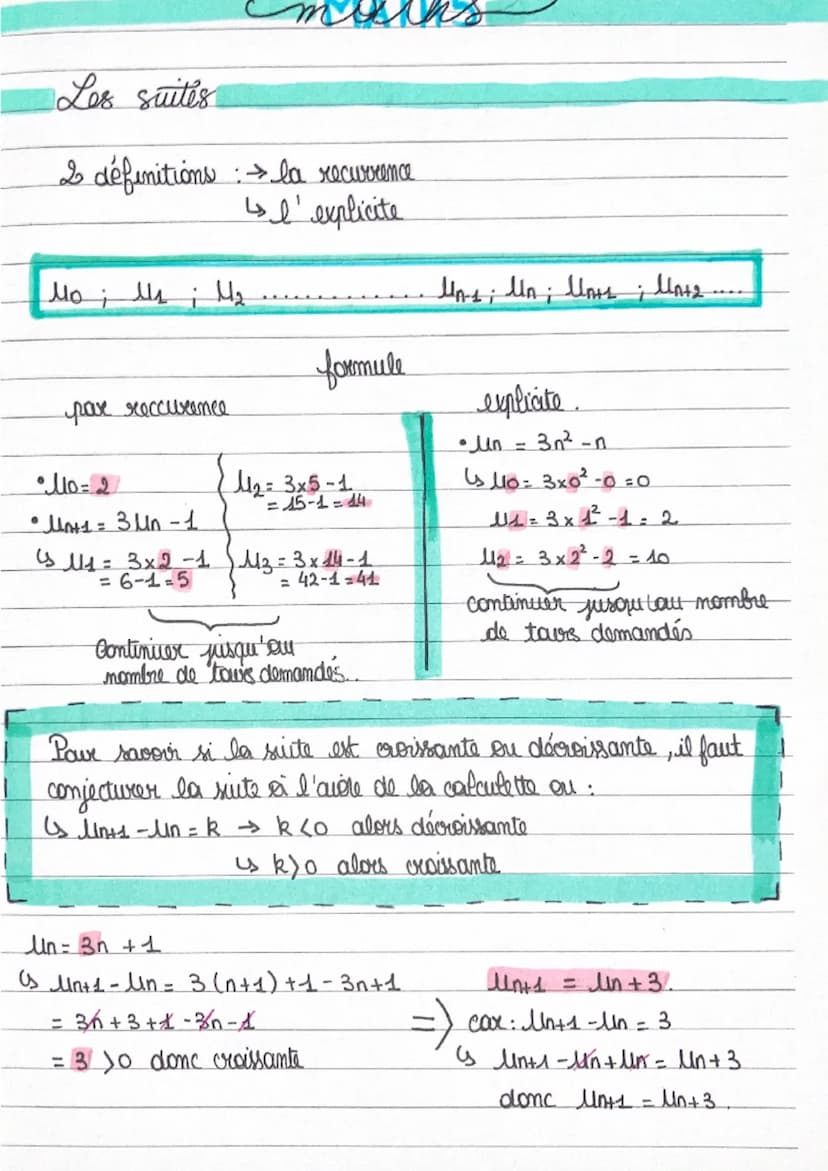 maths
Les suites
2 définitions : → la recurrence
↳ l'explicite
U0 ; U1 ; U2 .............. Un-1 ; Un ; Un+1 ; Un+2 ....
formule
par reccurence
• U0 = 2
• Un+1 = 3Un - 1
↳ U1 = 3x2 - 1
= 6-1 = 5
U2 = 3x5 - 1
= 15-1 = 14
U3 = 3x14-1
= 42-1 = 41
Continuer jusqu'au
nombre de tours demandés..
explicite.
• Un = 3n² - n
↳ U0 = 3x0² - 0 = 0
U1 = 3x1² - 1 = 2
U2 = 3x2² - 2 = 10
continuer jusqu'au nombre
de tours demandés
Pour savoir si la suite est croissante ou décroissante, il faut
conjecturer la suite à l'aide de la calculette ou :
↳ Un+1 - Un = k → k<0 alors décroissante
↳ k>0 alors croissante
Un = 3n + 1
↳ Un+1 - Un = 3(n+1) + 1 - 3n+1
= 3n + 3 + 1 - 3n - 1
= 3 >0 donc croissante
Un+1 = Un + 3.
=> car : Un+1 - Un = 3
↳ Un+1 - Un + Un = Un + 3
donc Un+1 = Un+3.